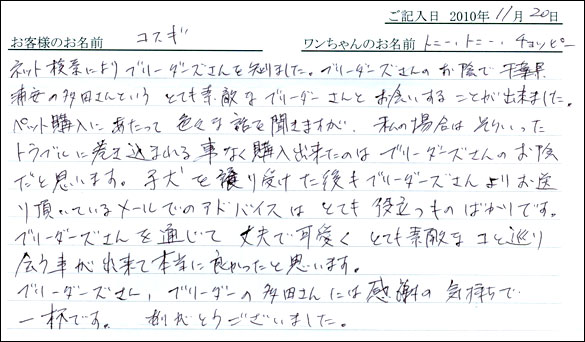 ご記入日 2010年 11月 20日
お客様のお名前 コスギ ワンちゃんのお名前 トニー、トニー、チョッピー
ネット検索によりブリーダーズさんを知りました。ブリーダーズさんのお陰で千葉県
浦安の多田さんという とても素敵なブリーダーさんとお会いすることが出来ました。
ペット購入にあたって色々な話を聞きますが、私の場合はそういった
トラブルに巻き込まれる事なく購入出来たのはブリーダーズさんのお陰
だと思います。子犬を譲り受けた後もブリーダーズさんよりお送
り頂いているメールでのアドバイスはとても役立つものばかりです。
ブリーダーズさんを通じて丈夫で可愛くとても素敵なコと巡り
会う事が出来て本当に良かったと思います。
ブリーダーズさん、ブリーダーの多田さんには感謝の気持ちで
一杯です。ありがとうございました。